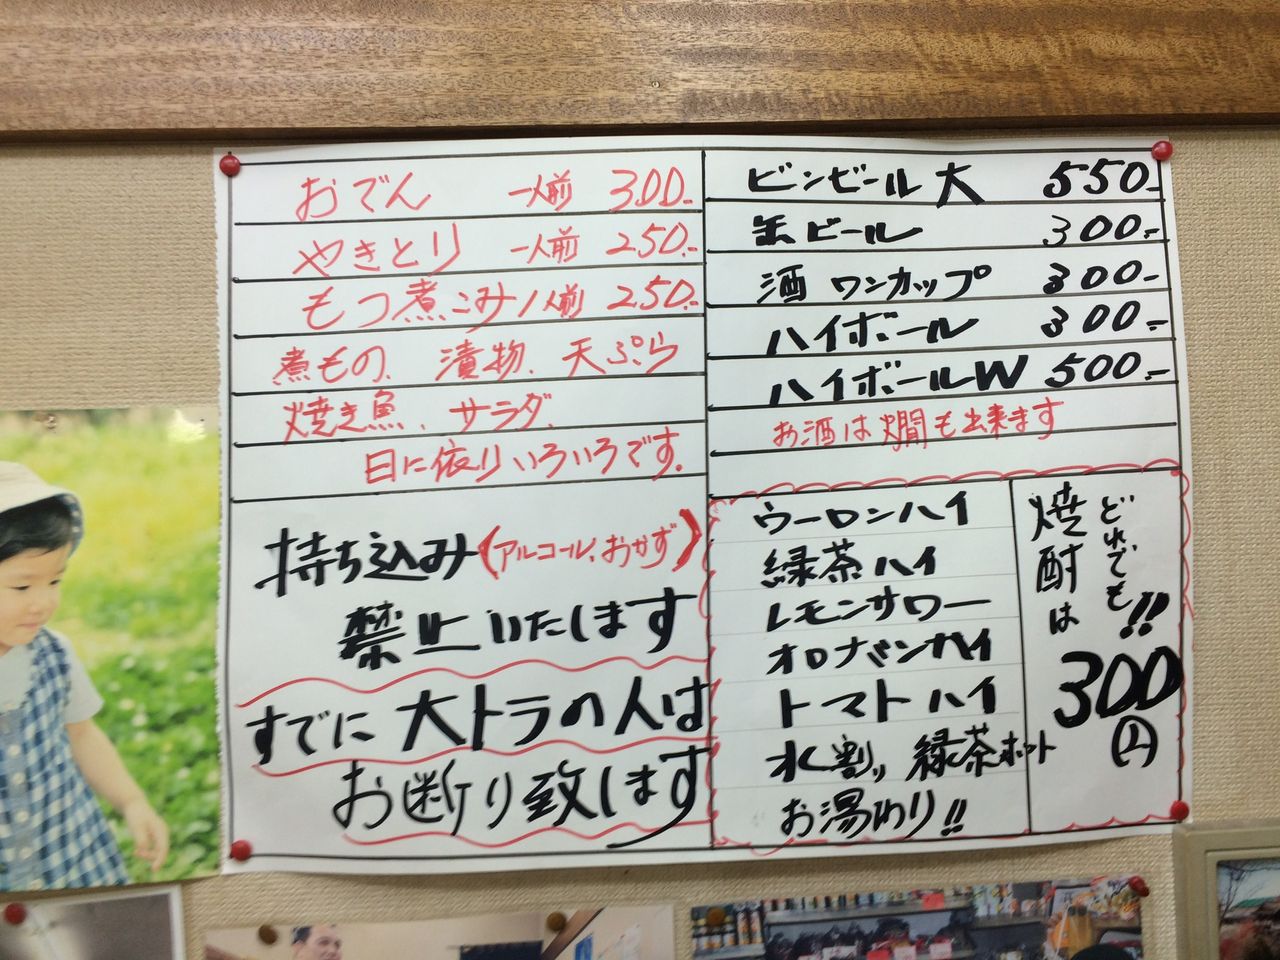 おでん 一人前 300.-
やきとり 一人前 250.-
もつ煮こみ 1人前 250.-
煮もの、漬物、天ぷら
焼き魚、サラダ、
日に依りいろいろです。
持ち込み(アルコール、おかず)
禁止いたします
すでに大トラの人は
お断り致します
ビンビール 大 550.-
缶ビール 300.-
酒 ワンカップ 300.-
ハイボール 300.-
ハイボールW 500.-
お酒は燗も出来ます
ウーロンハイ
緑茶ハイ
レモンサワー
オロナミンハイ
トマトハイ
水割り 緑茶ホット
お湯わり!!
どれでも!!
焼酎は
300円